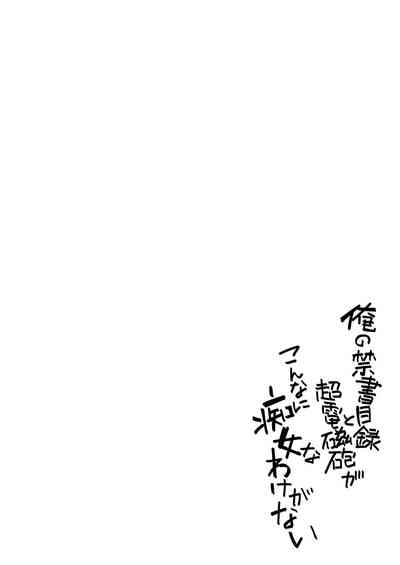 俺の禁書目録と
超電磁砲が
こんなに
痴女な
わけがない